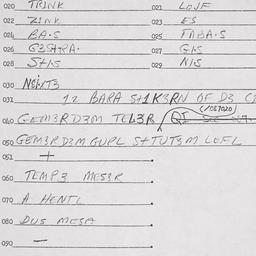 020 TRINK 021 LOJF
022 ZINK 023 ES
024 BA.S 025 TABA.S
026 G3STRA. 027 GIS
028 S+IS 029 NIS
030 NEINT3
031 12 BARA S+1K3RN OF D3
040 GEM3RD3M TEL3R (/067020)
050 GEM3RD3M GUPL S+TUT3M LOFL
051 +
060 TEMP3 MES3R
070 A HENTL
080 DUS MESA
090 —